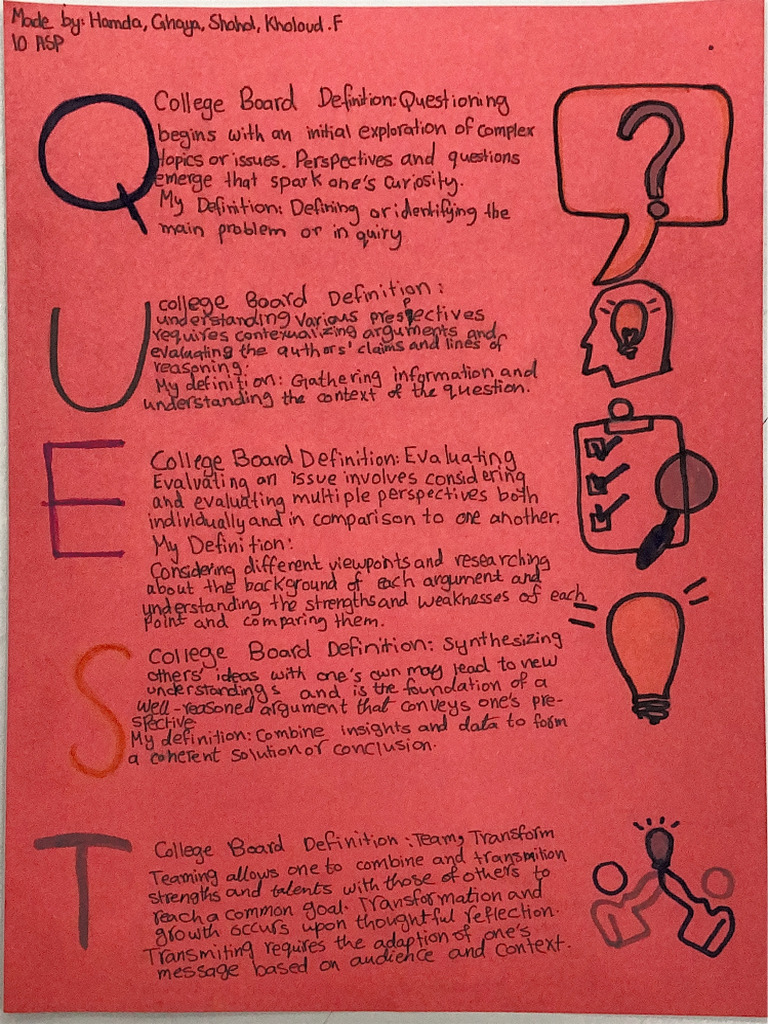 Made by: Hamda, Ghaya, Shahd, Kholoud .F
10 ASP
Q
College Board Definition: Questioning
begins with an initial exploration of complex
topics or issues. Perspectives and questions
emerge that spark one's curiosity.
My Definition: Defining or identifying the
main problem or in quiry
?
U
college Board Definition:
understanding various prespectives
requires contextualizing arguments and
evaluating the authors' claims and lines of
reasoning.
My definition: Gathering information and
understanding the context of the question.
E
College Board Definition: Evaluating
Evaluating an issue involves considering
and evaluating multiple perspectives both
individually and in comparison to one another.
My Definition:
Considering different viewpoints and researching
about the background of each argument and
understanding the strengths and weaknesses of each
point and comparing them.
S
College Board Definition: Synthesizing
others' ideas with one's own may lead to new
understandings and is the foundation of a
well-reasoned argument that conveys one's pre-
spective
My definition: Combine insights and data to form
a coherent solution or conclusion.
T
College Board Definition: Team, Transform
Teaming allows one to combine and transmition
strengths and talents with those of others to
reach a common goal. Transformation and
growth occurs upon thoughtful reflection.
Transmiting requires the adaption of one's
message based on audience and context.